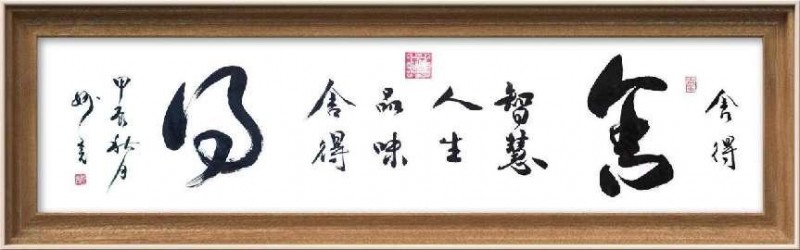 舍得
舍
智慧
人生
品味
舍得
得
甲辰秋月
妙